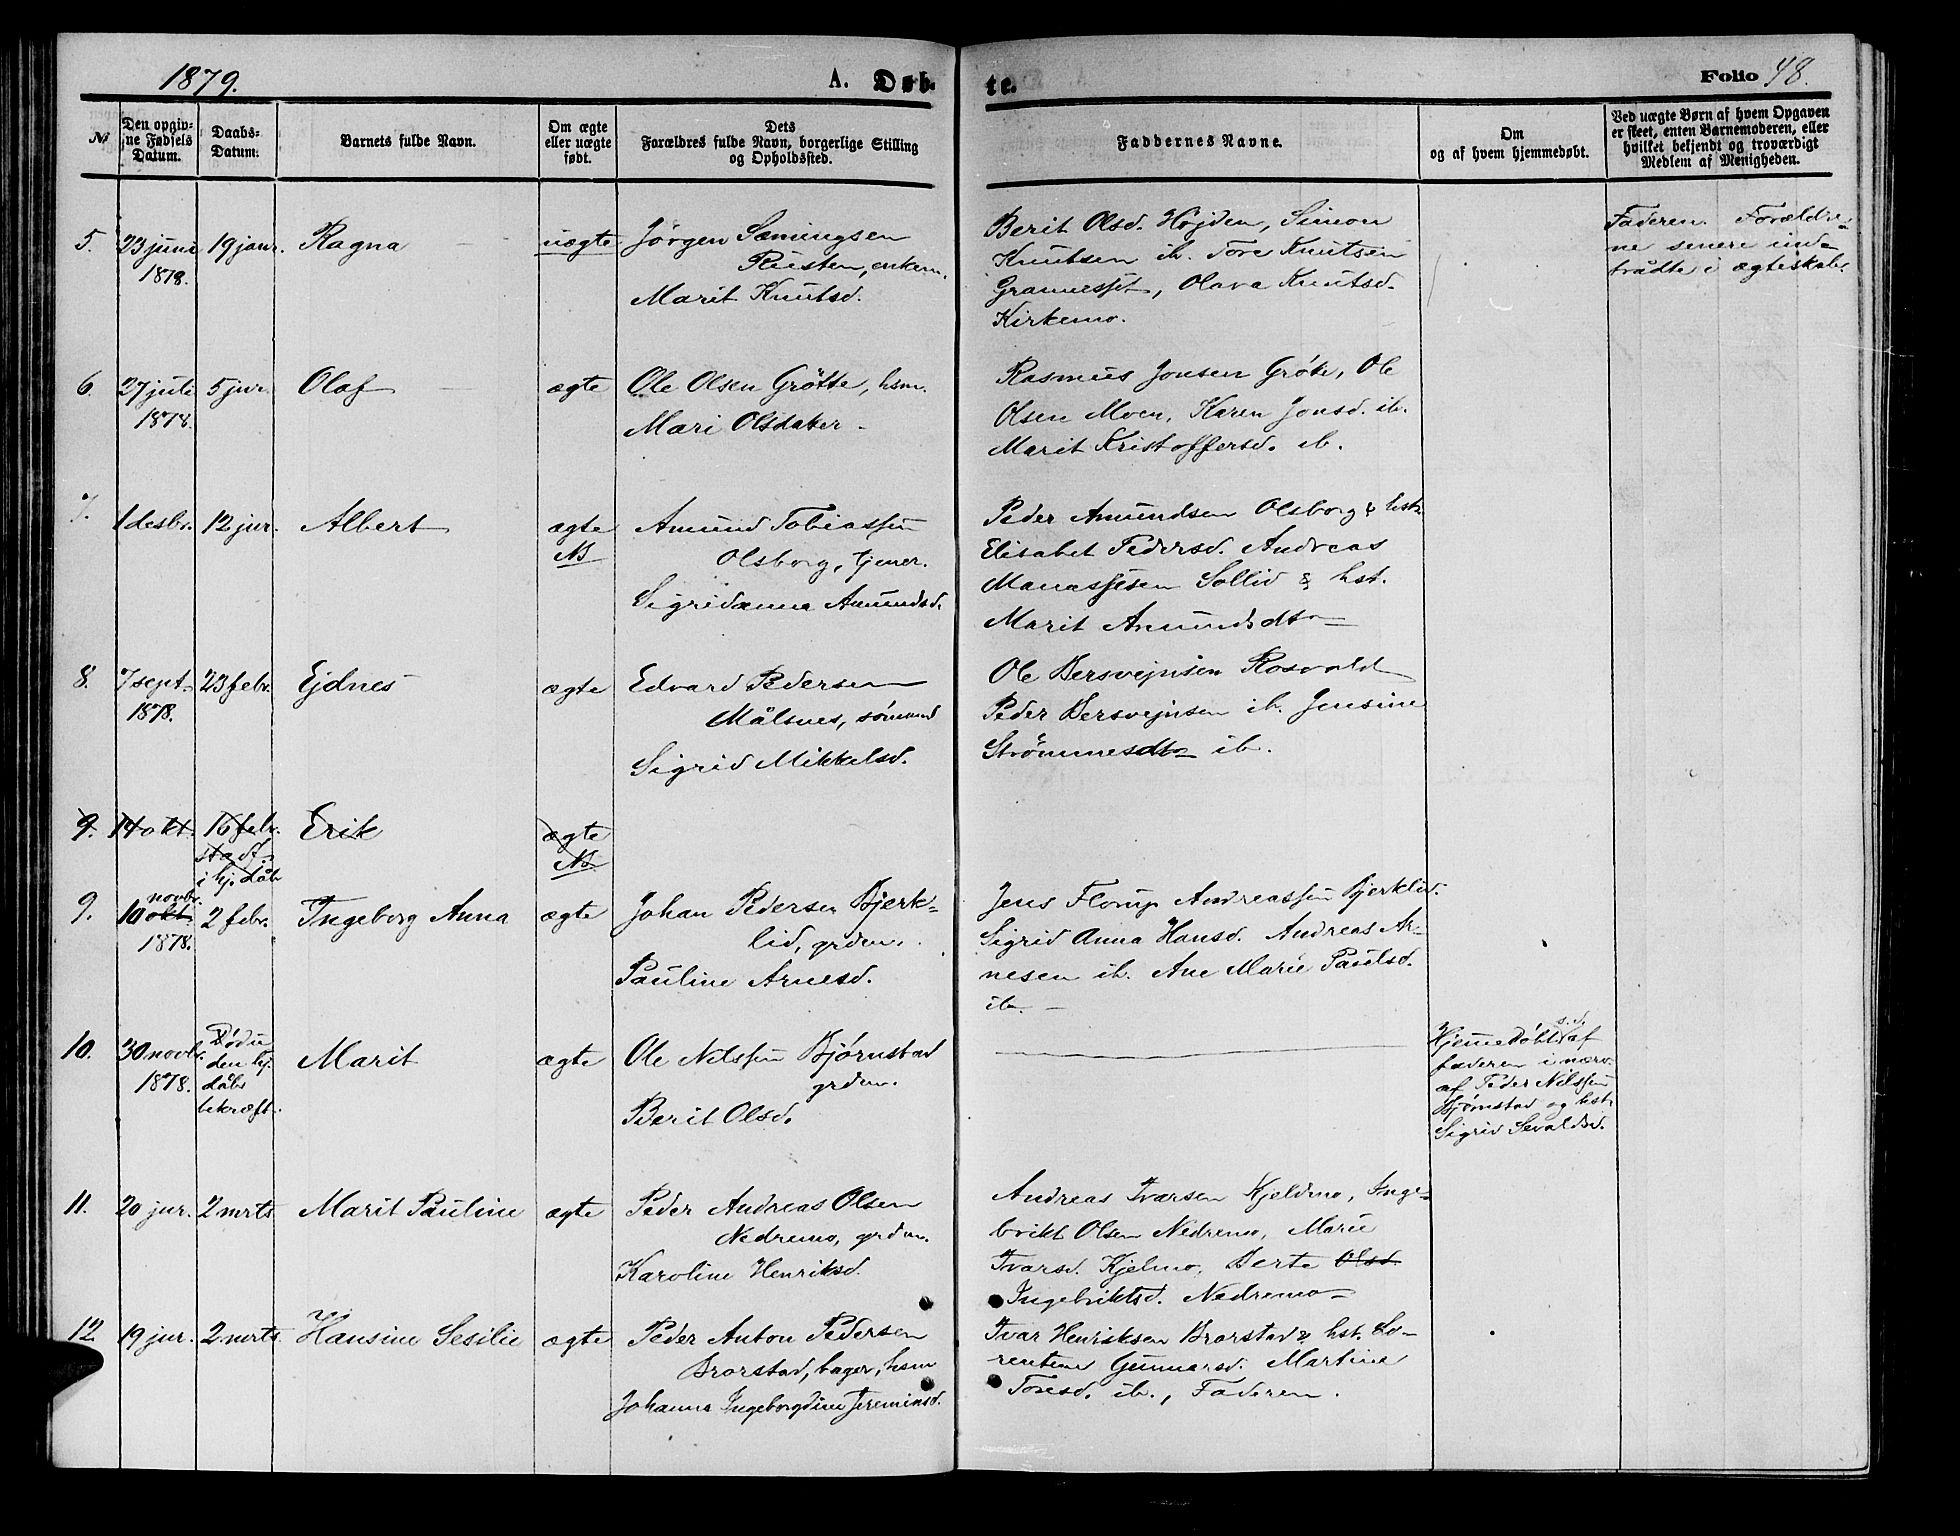 1879.
A. Døb-
te.
Folio 48.
№
Den opgiv-
ne Fødsels
Datum.
Daabs-
Datum.
Barnets fulde Navn.
Om ægte
eller uægte
født.
Dets
Forældres fulde Navn, borgerlige Stilling
og Opholdssted.
Faddernes Navne.
Om
og af hvem hjemmedøbt.
Ved uægte Børn af hvem Opgaven
er skeet, enten Barnemoderen, eller
hvilket bekjendt og troværdigt
Medlem af Menigheden.
5.
23 juni
1878.
19 janr.
Ragna
uægte
Jörgen Sæmingsen
Rusten, enkem.
Marit Knutsd.
Berit Olsd. Højden, Simon
Knutsen ib. Tore Knutsen
Olava Knutsd.
Kirkemo.
Faderen. Foreldre-
ne senere ind-
trådte i ægteskab.
6.
27 juli
1878.
5 jnr.
Olaf
ægte
Ole Olsen Grötte, hsm.
Mari Olsdatter
Rasmus Jonsen Gröte, Ole
Olsen Moen, Karen Jonsd. ib.
Marit Kristoffersd. ib.
7.
1 desbr.
12 jnr.
Albert
ægte
NB
Amund Tobiassen
Olsborg, tjener.
Sigridanna Amundsd.
Peder Amundsen Olsborg & hst.
Elisabet Pedersd. Andreas
Manassesen Sollid & hst.
Marit Amundsdtr
8.
7 sept.
1878.
23 febr.
Ejdnes
ægte
Edvard Pedersen
Målsnes, sömand
Sigrid Mikkelsd.
Ole Bersvejnsen Rosvold
Peder Bersvejnsen ib. Jensine
Strömmesdtr ib.
9.
14 okt.
16 febr.
stadf.
i hj. dåb
Erik
ægte
NB
9.
novbr.
10 okt.
1878.
2 febr.
Ingeborg Anna
ægte
Johan Pedersen Bjerk-
lid, grdm.
Pauline Arnesd.
Jens Florup Andreassen Bjerklid.
Sigrid Anna Hansd. Andreas Ar-
nesen ib. Ane Marie Paulsd.
ib.
10.
30 novbr.
1878.
Död u
den hj.
dåbs
bekræft.
Marit
ægte
Ole Nilssen Bjørnstad
grdm.
Berit Olsd.
Hjemmedöbt s.d. af
faderen i nærv.
af Peder Nilssen
Bjørnstad og hst.
Sigrid Sevaldsd.
11.
20 jnr.
2 mrts
Marit Pauline
ægte
Peder Andreas Olsen
Nedremo, grdm.
Karoline Henriksd.
Andreas Ivarsen Kjeldmo, Inge-
brikt Olsen Nedremo, Marie
Ivarsd. Kjelmo, Berte Olsd
Ingebriktsd. Nedremo
12
19 jnr.
2 mrts
Hansine Sesilie
ægte
Peder Anton Pedersen
Brorstad, bager, hsm
Johanna Ingeborgdine Jereminsd.
Ivar Henriksen Brorstad & hst. Lo-
rentine Gunnarsd. Martine
Toresd. ib., Faderen.